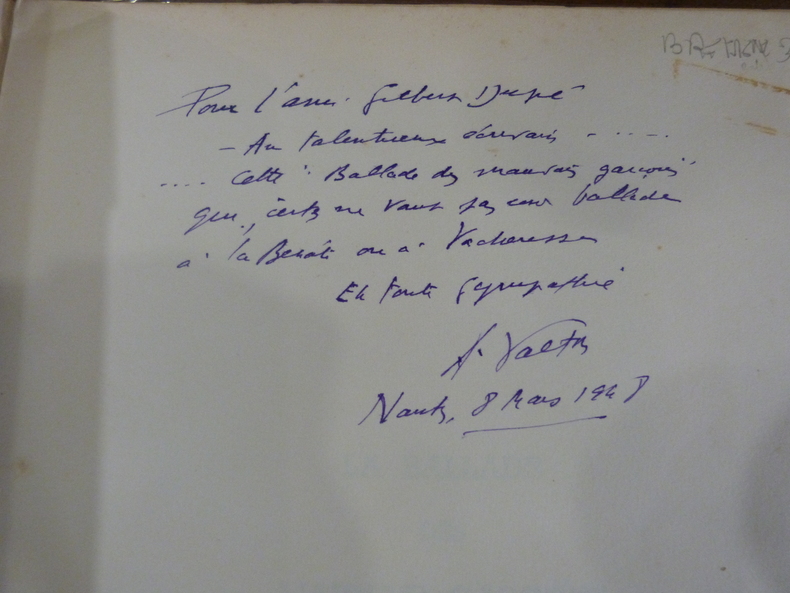 BRETAGNE
Pour l'ami Gilbert Dupé
- Au talentueux écrivain - . . . - .
.... Cette "Ballade des mauvais garçons"
qui, certes ne vaut pas une ballade
à la Benâte ou à Vacheresse
En toute sympathie
A. Valtis
Nantes, 8 Mars 1948